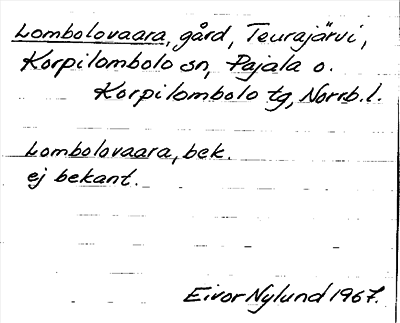 Lombolovaara, gård, Teurajärvi,
Korpilombolo sn, Pajala o.
Korpilombolo tg, Norrb.l.
Lombolovaara, bek.
ej bekant.
Eivor Nylund 1967.